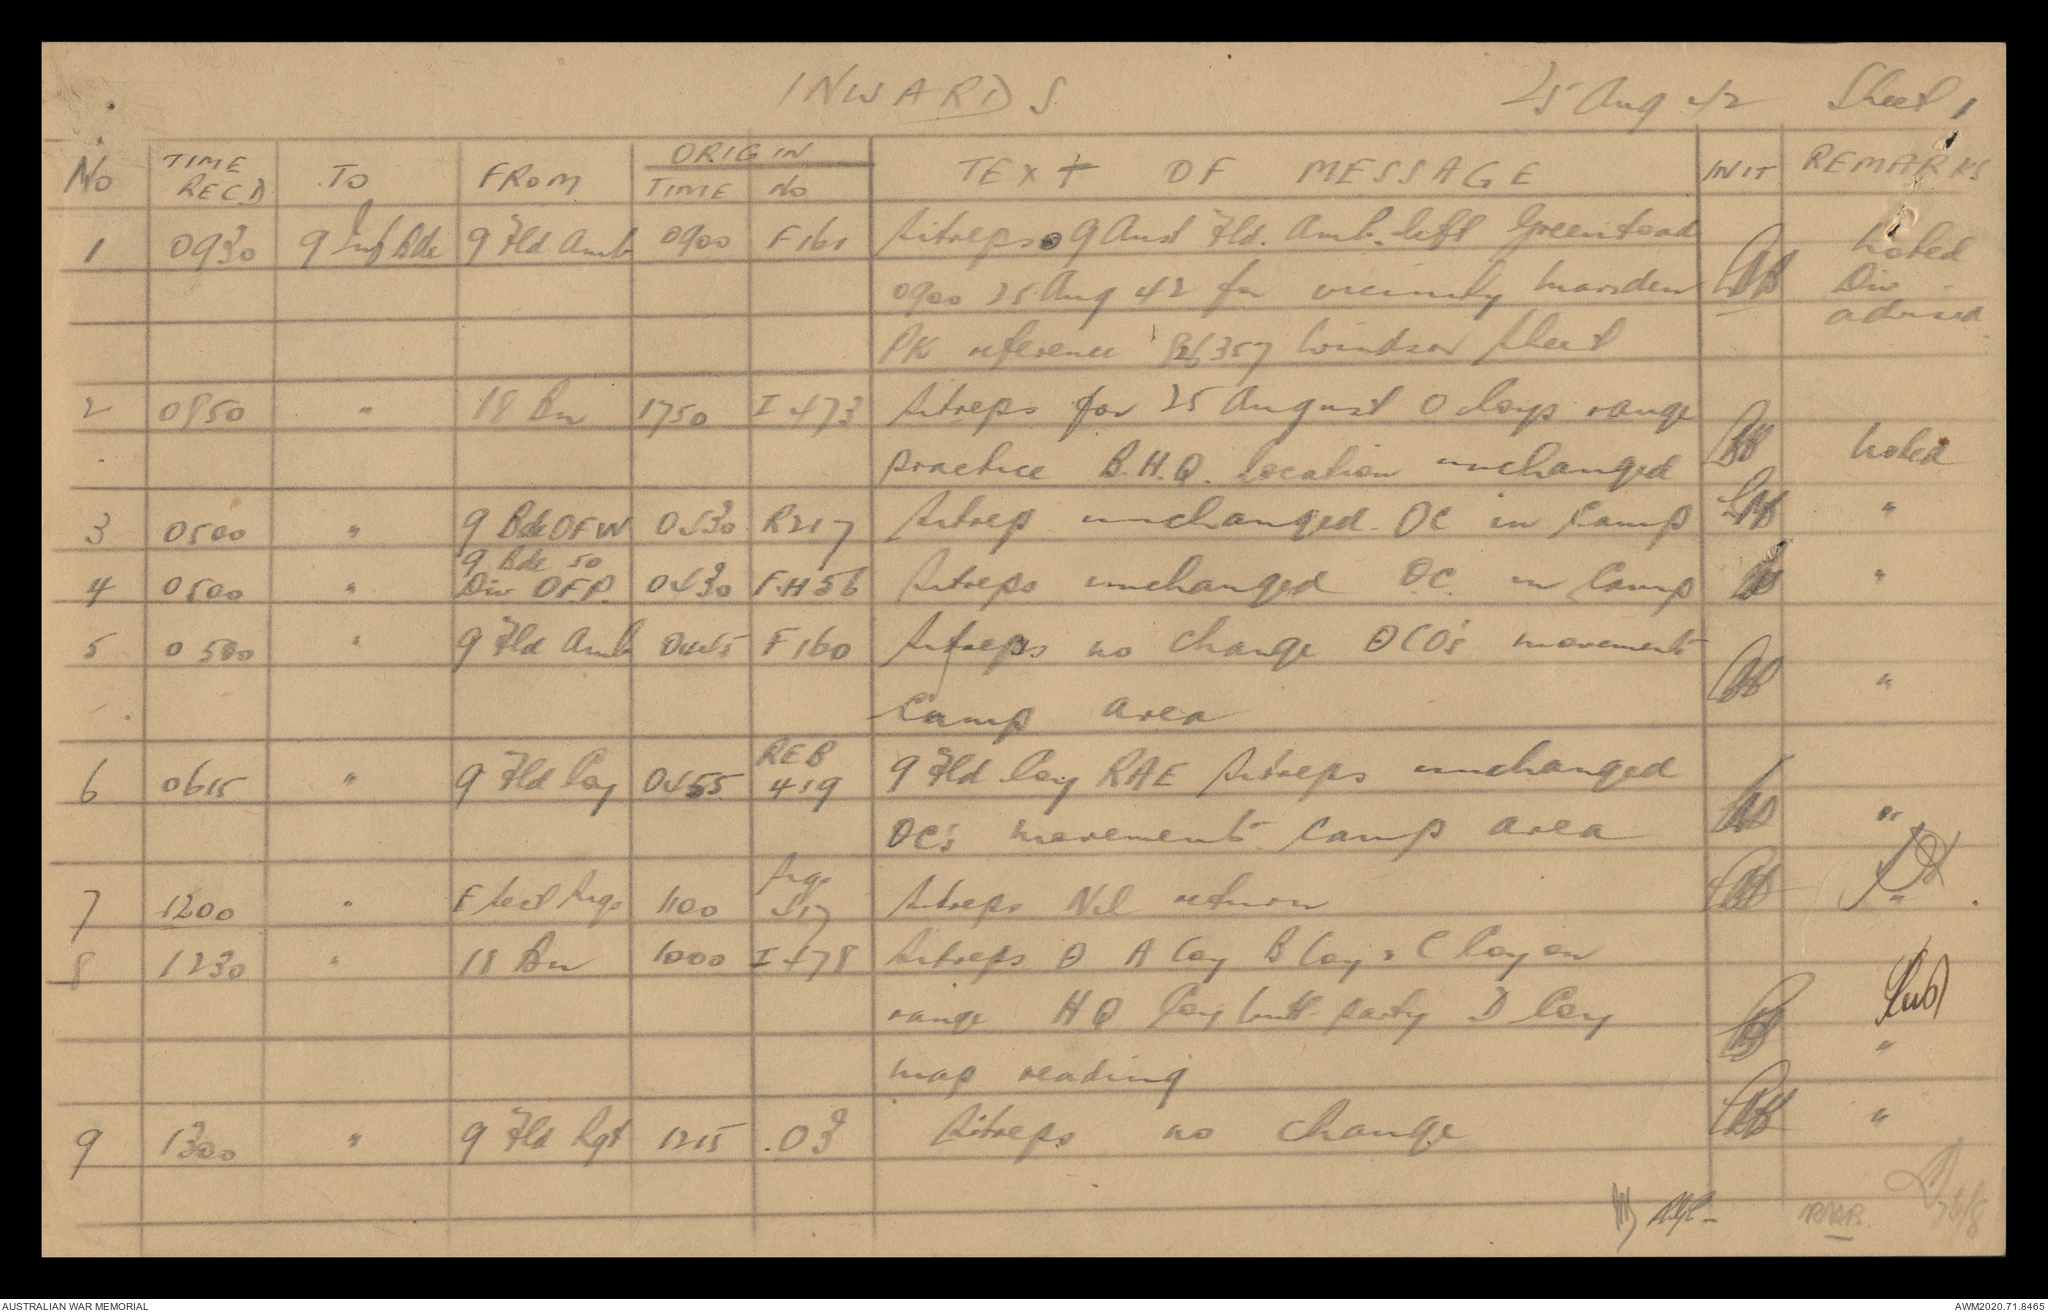 INWARDS 25 Aug 42 Sheet 1
No TIME RECD TO FROM ORIGIN TIME NO TEXT OF MESSAGE INIT REMARKS
1 0930 9 Inf Bde 9 Fld Amb 0900 F161 Sitreps 9 Aust Fld. Amb. left Greenstead Noted
0900 25 Aug 42 for vicinity Marsden Div advised
PK reference 357 Windsor Sheet
2 0850 " 18 Bn 1750 I 473 Sitreps for 25 August O Coys range
practice B.H.Q. location unchanged Noted
3 0500 " 9 Bde OFW 0430 R217 Sitrep unchanged. OC in Camp "
4 0500 " 9 Bde 50 Div OFP. 0430 F.H56 Sitreps unchanged OC. in Camp "
5 0500 " 9 Fld Amb 0445 F160 Sitreps no change CO's movements
Camp area "
6 0615 " 9 Fld Coy 0455 REB 419 9 Fld Coy RAE Sitreps unchanged
OC's movements Camp area "
7 1200 " F Sect Sigs 1100 Sigs 417 Sitreps Nil return "
8 1230 " 18 Bn 1000 I 478 Sitreps A Coy B Coy & C Coy on
range HQ Coy butt party D Coy
map reading "
9 1300 " 9 Fld Rgt 1215 .03 Sitreps no change "
26/8
AUSTRALIAN WAR MEMORIAL AWM2020.71.8465